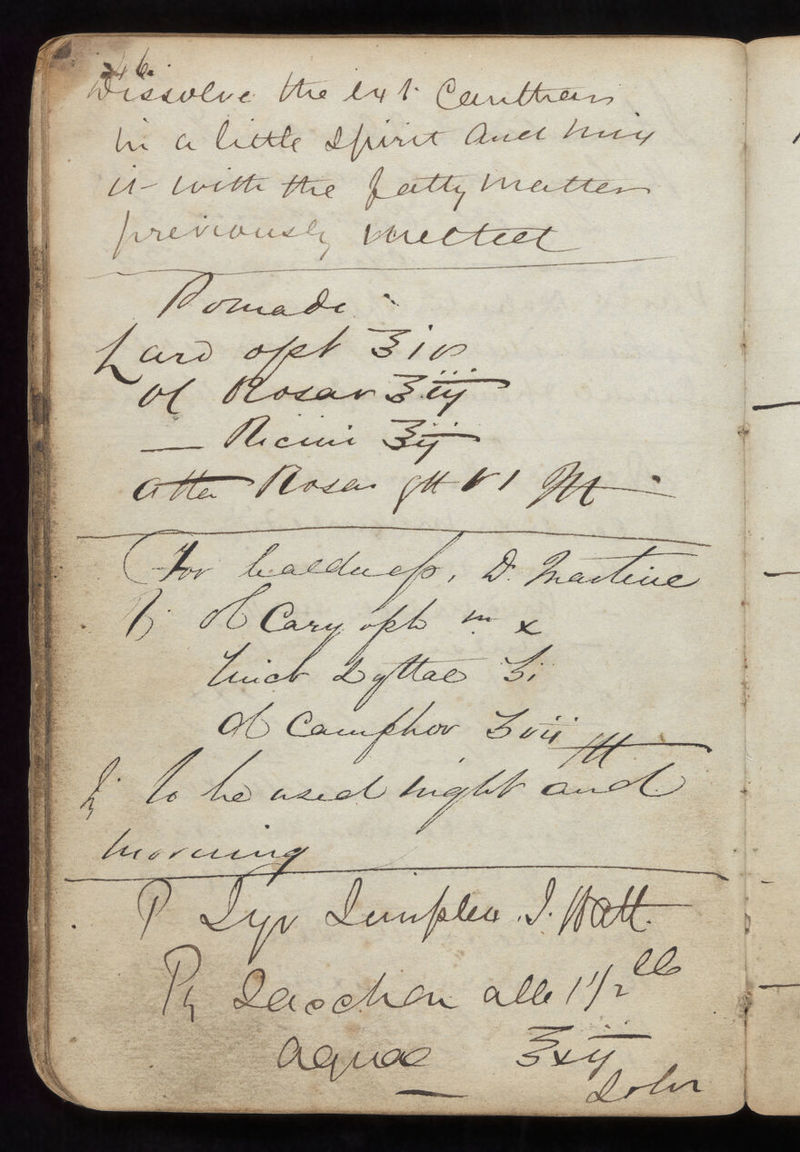 46
Dissolve the ext Canthar
in a little spirit and mix
it with the fatty matter
previously melted
Pomade
Lard opt ℥iv
Ol Rosar ʒiij
— Ricini ʒij
Otto Rosar gtt VI M
For baldness, D. Martine
℞ Ol Caryoph m x
Tinct Lyttae ʒi
Ol Camphor ʒvii M
To be used night and
morning
P Syr Simplex J. Watt.
℞ Sacchar alb 1 1/2 lb
aquae ℥xij
Solv